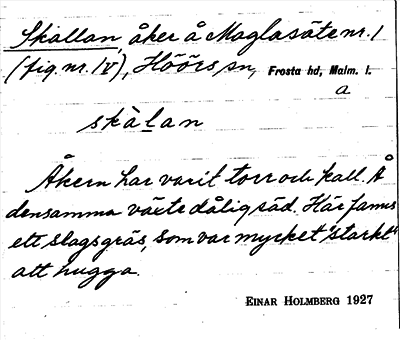 Skallan, åker å Maglasäte nr. 1
(fig nr. IV), Höörs sn, Frosta hd, Malm. l.
a
skàlan
Åkern har varit torr och kall. Å
densamma växte dålig säd. Här fanns
ett slagsgräs, som var mycket "starkt"
att hugga.
EINAR HOLMBERG 1927